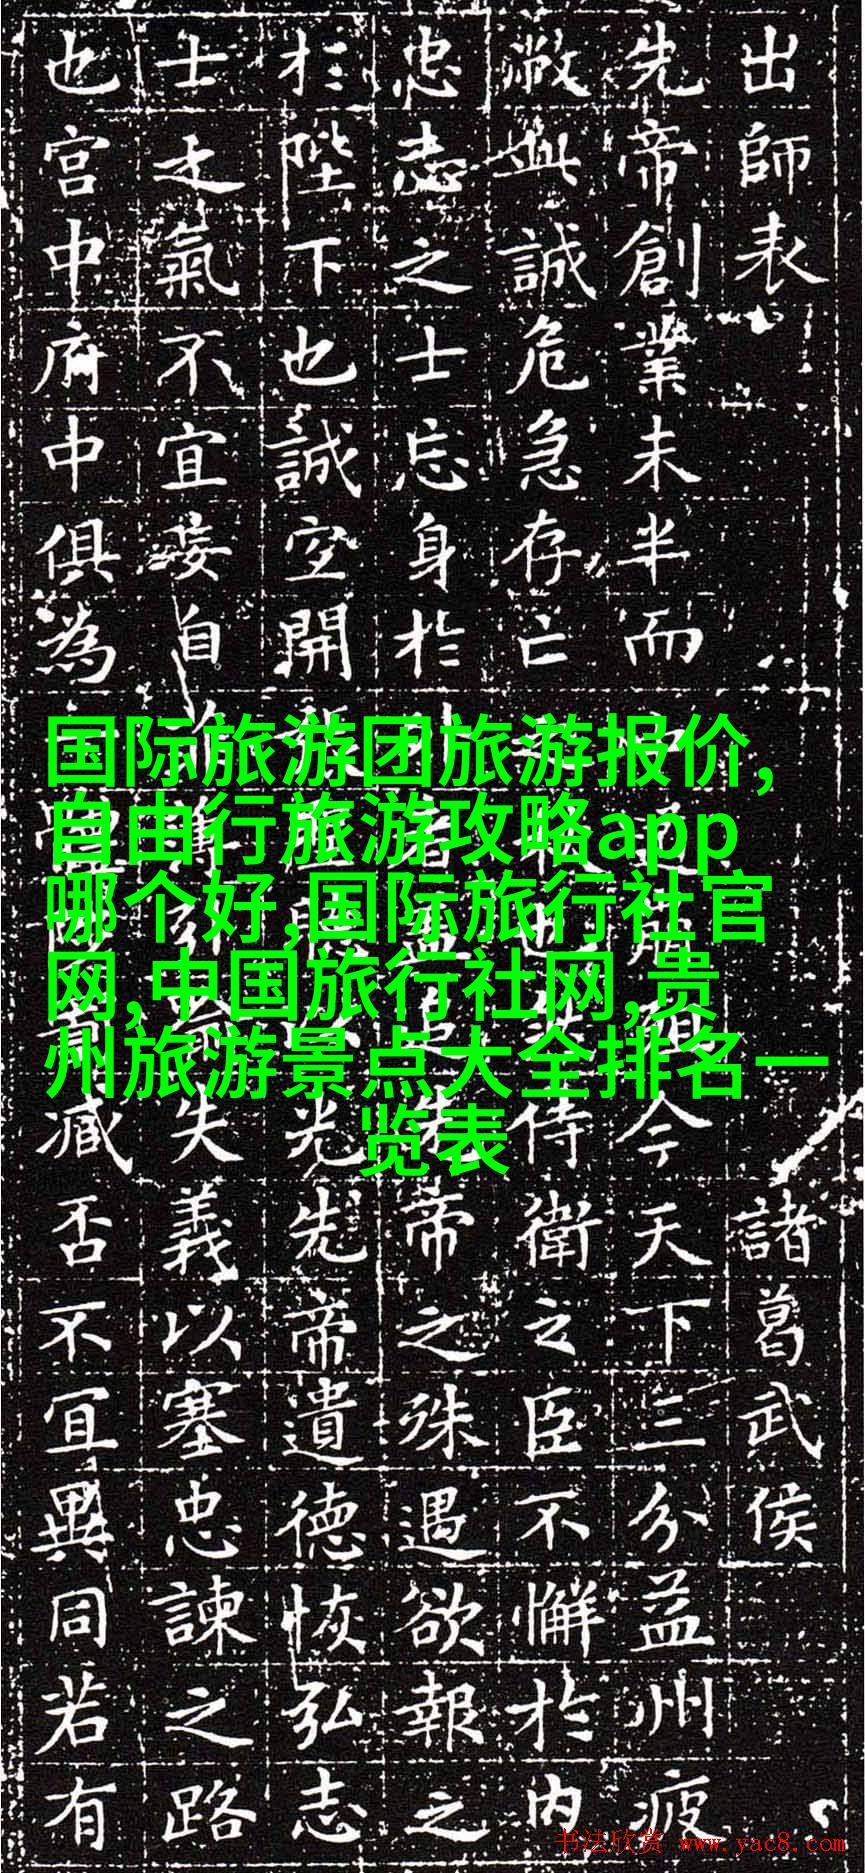 出師表 諸葛武侯
先帝創業未半而 今天下三分益州疲
敝 誠危急存亡 侍衛之臣不懈於內
忠志之士忘身於外者盖追先帝之殊遇欲報之
於陛下也誠宜開張 光先帝遺德恢弘志
士之氣不宜妄自 失義以塞忠諫之路
也宮中府中俱為 臧否不宜異同若有
国际旅游团旅游报价,
自由行旅游攻略app
哪个好,国际旅行社官
网,中国旅行社网,贵
州旅游景点大全排名一
览表
书法欣赏 www.yac8.com